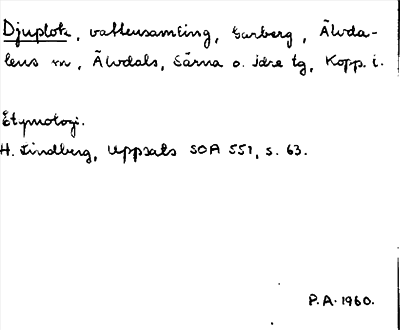 Djuplok, vattensamling, Garberg, Älvda-
lens sn, Älvdals, Särna o. Idre tg, Kopp. l.
Etymologi.
H. Lindberg, Uppsats SOA 551, s. 63.
P.A. 1960.